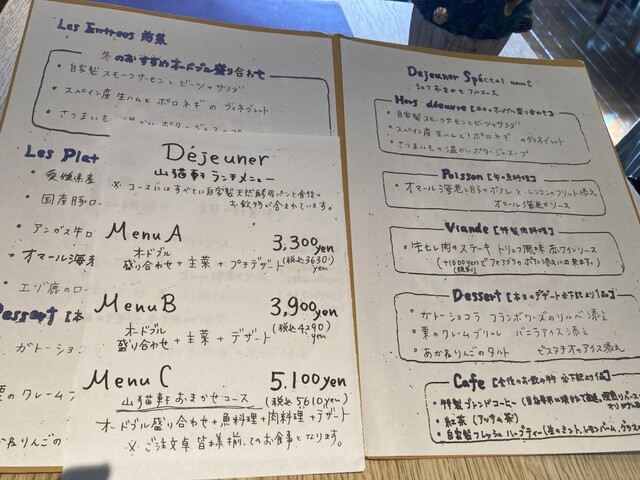 Les Entrees 前菜
冬のおすすめオードブル盛り合わせ
・自家製スモークサーモンとビーツのサラダ
・スペイン産生ハムとポロネギのヴィネグレット
・さつまいも
Les Plat
・愛媛県産
・国産豚ロ
・アンガス牛ロ
・オマール海老
・エゾ鹿のロー
Dessert【本
ガトーショコ
栗のクレーム
あかねりんごの
Déjeuner
山猫軒 ランチメニュー
※コースにはすべてに自家製天然酵母パンと食後の
お飲物が含まれています。
Menu A 3,300yen
オードブル
盛り合わせ + 主菜 + プチデザート (税込3630)yen
Menu B 3,900yen
オードブル
盛り合わせ + 主菜 + デザート (税込4290)yen
Menu C 5,100yen
山猫軒おまかせコース (税込5610yen)
オードブル盛り合わせ+魚料理+肉料理+デザート
※ご注文は皆様揃ってのお食事となります。
Dejeuner Spécial menu C
シェフおまかせフルコース
Hors déeuvre【本日のオードブル盛り合わせ】
・自家製スモークサーモンとビーツのサラダ
・スペイン産生ハムとポロネギのヴィネグレット
・さつまいもの温かいポタージュスープ
Poisson【本日の魚料理】
・オマール海老と帆立のポワレ レンコンのフリット添え
オマール海老のソース
Viande【特製肉料理】
・牛ヒレ肉のステーキ トリュフ風味 赤ワインソース
(+1600yenでフォアグラのポワレ添えに出来ます。)
(税別)
Dessert【本日のデザート 下記より1品】
・ガトーショコラ フランボワーズのソルベ添え
・栗のクレームブリュレ バニラアイス添え
・あかねりんごのタルト ピスタチオのアイス添え
Cafe【食後のお飲み物 下記より1品】
・特製ブレンドコーヒー
・紅茶(アッサム茶)
・自家製フレッシュハーブティー(生のミント、レモンバーム、